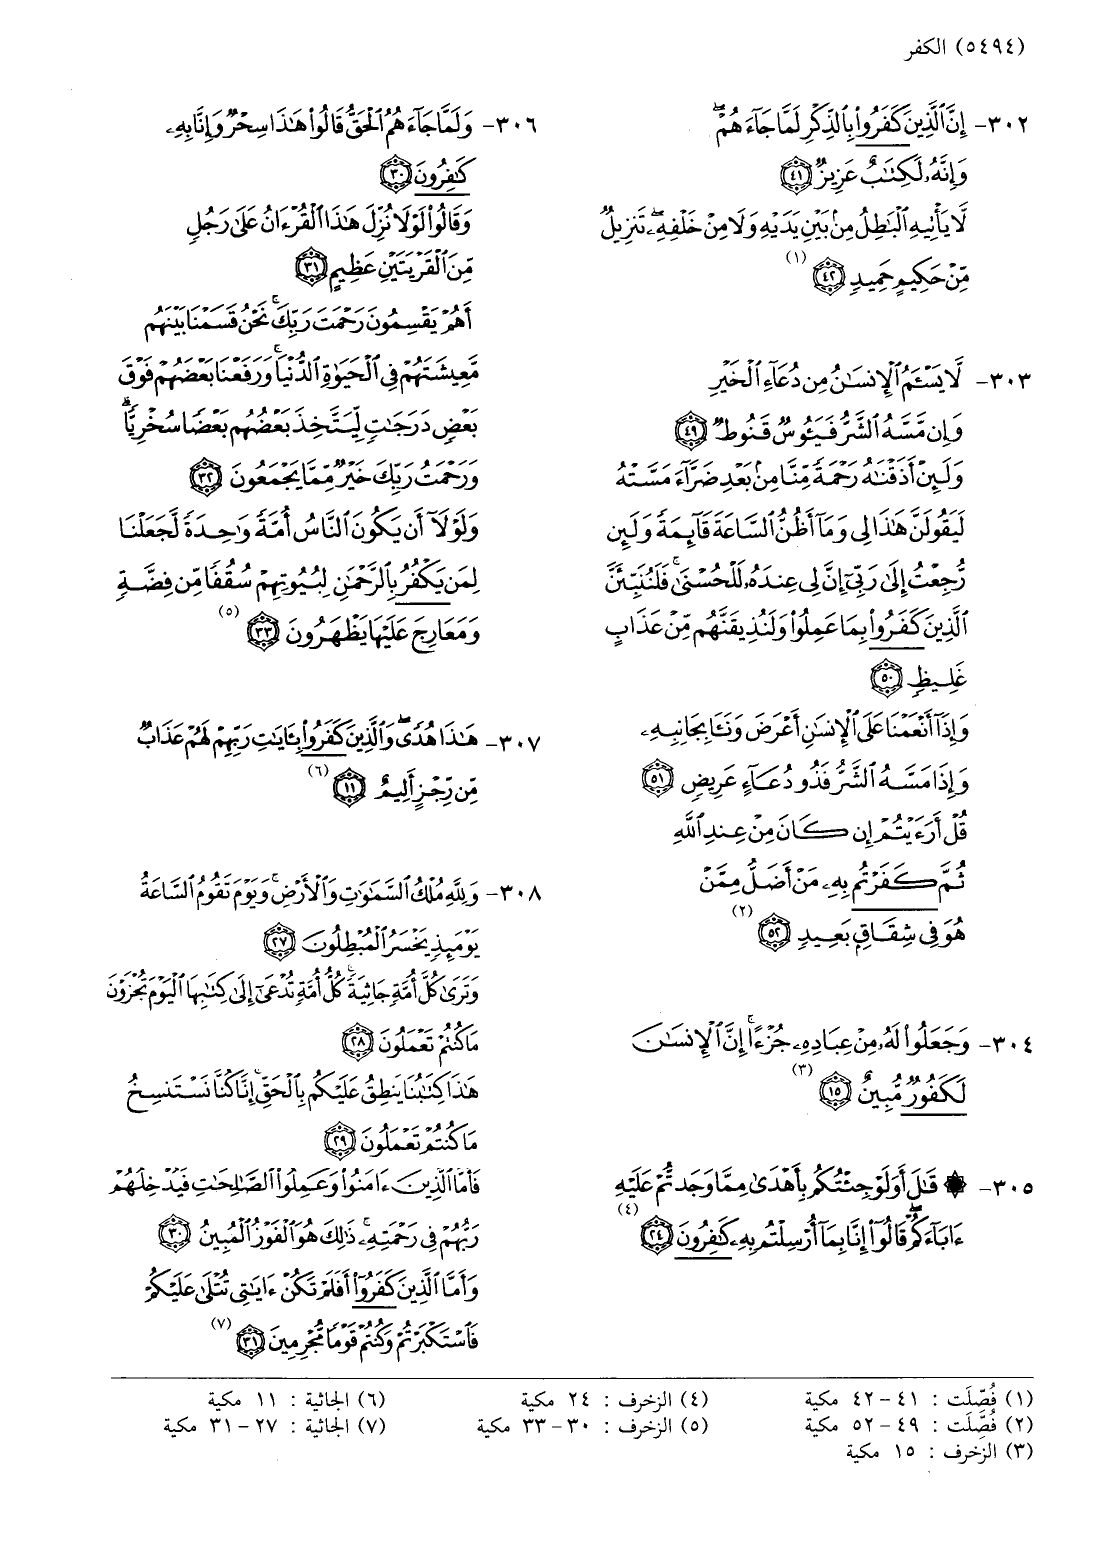 (٥٤٩٤) الكفر
٣٠٢- إِنَّ ٱلَّذِينَ كَفَرُوا۟ بِٱلذِّكْرِ لَمَّا جَآءَهُمْ ۖ
وَإِنَّهُۥ لَكِتَٰبٌ عَزِيزٌ ﴿٤١﴾
لَّا يَأْتِيهِ ٱلْبَٰطِلُ مِنۢ بَيْنِ يَدَيْهِ وَلَا مِنْ خَلْفِهِۦ ۖ تَنزِيلٌ
مِّنْ حَكِيمٍ حَمِيدٍ ﴿٤٢﴾ (١)
٣٠٣- لَّا يَسْـَٔمُ ٱلْإِنسَٰنُ مِن دُعَآءِ ٱلْخَيْرِ
وَإِن مَّسَّهُ ٱلشَّرُّ فَيَـُٔوسٌ قَنُوطٌ ﴿٤٩﴾
وَلَئِنْ أَذَقْنَٰهُ رَحْمَةً مِّنَّا مِنۢ بَعْدِ ضَرَّآءَ مَسَّتْهُ
لَيَقُولَنَّ هَٰذَا لِى وَمَآ أَظُنُّ ٱلسَّاعَةَ قَآئِمَةً وَلَئِن
رُّجِعْتُ إِلَىٰ رَبِّىٓ إِنَّ لِى عِندَهُۥ لَلْحُسْنَىٰ ۚ فَلَنُنَبِّئَنَّ
ٱلَّذِينَ كَفَرُوا۟ بِمَا عَمِلُوا۟ وَلَنُذِيقَنَّهُم مِّنْ عَذَابٍ
غَلِيظٍ ﴿٥٠﴾
وَإِذَآ أَنْعَمْنَا عَلَى ٱلْإِنسَٰنِ أَعْرَضَ وَنَـَٔا بِجَانِبِهِۦ
وَإِذَا مَسَّهُ ٱلشَّرُّ فَذُو دُعَآءٍ عَرِيضٍ ﴿٥١﴾
قُلْ أَرَءَيْتُمْ إِن كَانَ مِنْ عِندِ ٱللَّهِ
ثُمَّ كَفَرْتُم بِهِۦ مَنْ أَضَلُّ مِمَّنْ
هُوَ فِى شِقَاقٍۭ بَعِيدٍ ﴿٥٢﴾ (٢)
٣٠٤- وَجَعَلُوا۟ لَهُۥ مِنْ عِبَادِهِۦ جُزْءًا ۚ إِنَّ ٱلْإِنسَٰنَ
لَكَفُورٌ مُّبِينٌ ﴿١٥﴾ (٣)
٣٠٥- ۞ قَٰلَ أَوَلَوْ جِئْتُكُم بِأَهْدَىٰ مِمَّا وَجَدتُّمْ عَلَيْهِ
ءَابَآءَكُمْ ۖ قَالُوٓا۟ إِنَّا بِمَآ أُرْسِلْتُم بِهِۦ كَٰفِرُونَ ﴿٢٤﴾ (٤)
٣٠٦- وَلَمَّا جَآءَهُمُ ٱلْحَقُّ قَالُوا۟ هَٰذَا سِحْرٌ وَإِنَّا بِهِۦ
كَٰفِرُونَ ﴿٣٠﴾
وَقَالُوا۟ لَوْلَا نُزِّلَ هَٰذَا ٱلْقُرْءَانُ عَلَىٰ رَجُلٍ
مِّنَ ٱلْقَرْيَتَيْنِ عَظِيمٍ ﴿٣١﴾
أَهُمْ يَقْسِمُونَ رَحْمَتَ رَبِّكَ ۚ نَحْنُ قَسَمْنَا بَيْنَهُم
مَّعِيشَتَهُمْ فِى ٱلْحَيَوٰةِ ٱلدُّنْيَا ۚ وَرَفَعْنَا بَعْضَهُمْ فَوْقَ
بَعْضٍ دَرَجَٰتٍ لِّيَتَّخِذَ بَعْضُهُم بَعْضًا سُخْرِيًّا ۗ
وَرَحْمَتُ رَبِّكَ خَيْرٌ مِّمَّا يَجْمَعُونَ ﴿٣٢﴾
وَلَوْلَآ أَن يَكُونَ ٱلنَّاسُ أُمَّةً وَٰحِدَةً لَّجَعَلْنَا
لِمَن يَكْفُرُ بِٱلرَّحْمَٰنِ لِبُيُوتِهِمْ سُقُفًا مِّن فِضَّةٍ
وَمَعَارِجَ عَلَيْهَا يَظْهَرُونَ ﴿٣٣﴾ (٥)
٣٠٧- هَٰذَا هُدًى ۖ وَٱلَّذِينَ كَفَرُوا۟ بِـَٔايَٰتِ رَبِّهِمْ لَهُمْ عَذَابٌ
مِّن رِّجْزٍ أَلِيمٌ ﴿١١﴾ (٦)
٣٠٨- وَلِلَّهِ مُلْكُ ٱلسَّمَٰوَٰتِ وَٱلْأَرْضِ ۚ وَيَوْمَ تَقُومُ ٱلسَّاعَةُ
يَوْمَئِذٍ يَخْسَرُ ٱلْمُبْطِلُونَ ﴿٢٧﴾
وَتَرَىٰ كُلَّ أُمَّةٍ جَاثِيَةً ۚ كُلُّ أُمَّةٍ تُدْعَىٰٓ إِلَىٰ كِتَٰبِهَا ٱلْيَوْمَ تُجْزَوْنَ
مَا كُنتُمْ تَعْمَلُونَ ﴿٢٨﴾
هَٰذَا كِتَٰبُنَا يَنطِقُ عَلَيْكُم بِٱلْحَقِّ ۚ إِنَّا كُنَّا نَسْتَنسِخُ
مَا كُنتُمْ تَعْمَلُونَ ﴿٢٩﴾
فَأَمَّا ٱلَّذِينَ ءَامَنُوا۟ وَعَمِلُوا۟ ٱلصَّٰلِحَٰتِ فَيُدْخِلُهُمْ
رَبُّهُمْ فِى رَحْمَتِهِۦ ۚ ذَٰلِكَ هُوَ ٱلْفَوْزُ ٱلْمُبِينُ ﴿٣٠﴾
وَأَمَّا ٱلَّذِينَ كَفَرُوٓا۟ أَفَلَمْ تَكُنْ ءَايَٰتِى تُتْلَىٰ عَلَيْكُمْ
فَٱسْتَكْبَرْتُمْ وَكُنتُمْ قَوْمًا مُّجْرِمِينَ ﴿٣١﴾ (٧)
(١) فُصِّلَت : ٤١ – ٤٢ مكية
(٢) فُصِّلَت : ٤٩ – ٥٢ مكية
(٣) الزخرف : ١٥ مكية
(٤) الزخرف : ٢٤ مكية
(٥) الزخرف : ٣٠ – ٣٣ مكية
(٦) الجاثية : ١١ مكية
(٧) الجاثية : ٢٧ – ٣١ مكية